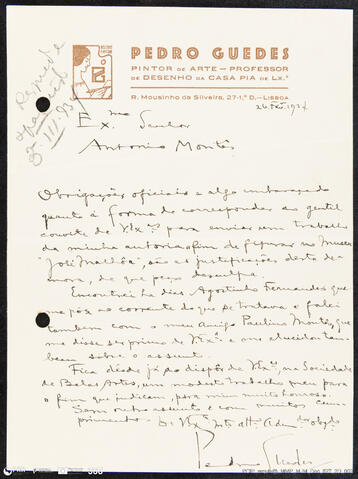 PEDRO GUEDES
PINTOR DE ARTE — PROFESSOR
DE DESENHO DA CASA PIA DE LX.ª
R. Mousinho da Silveira, 27-1.º D.—LISBOA
Ex.mo Senhor
Antonio Montês
Obrigações oficiais e algo embaraçado
quanto á forma de corresponder ao gentil
convite de V. Ex.ª para enviar um trabalho
da minha autoria afim de figurar no Museu
"José Malhôa", são as justificações desta de-
mora, de que peço desculpa.
Encontrei ha dias Agostinho Fernandes que
me pôz ao corrente do que se tratava e falei
tambem com o meu Amigo Paulino Montês, que
me disse ser primo de V. Ex.ª e me elucidou tam-
bem sobre o assunto.
Fica désde já ao dispôr de V. Ex.ª, na Sociedade
de Belas Artes, um modesto trabalho meu para
o fim que indicam, para mim muito honroso.
Sem outro assunto e com muitos cum-
primentos De V. Ex.ª
Pedro Guedes